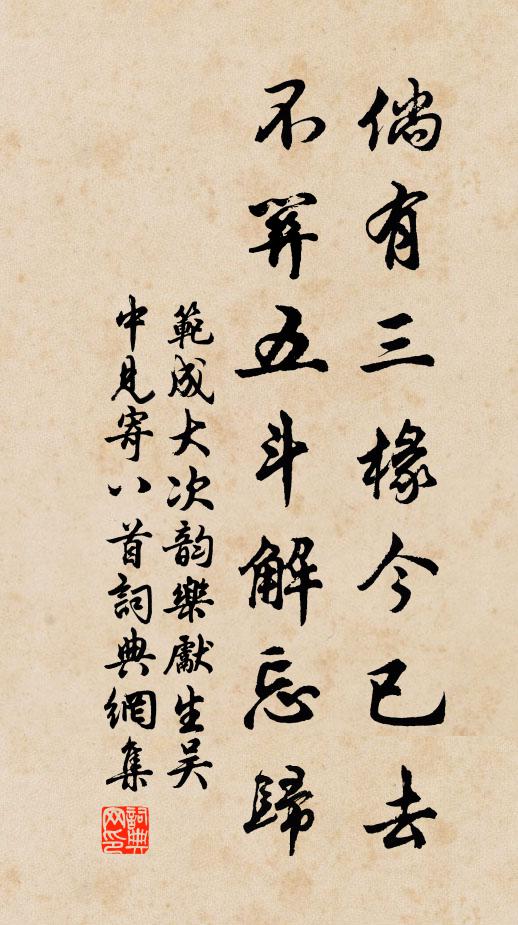 倘有三椽今已去
不筭五斗解忘歸
範成大次韵樂獻生吳
中見寄八首詞典網集
詞典
网印